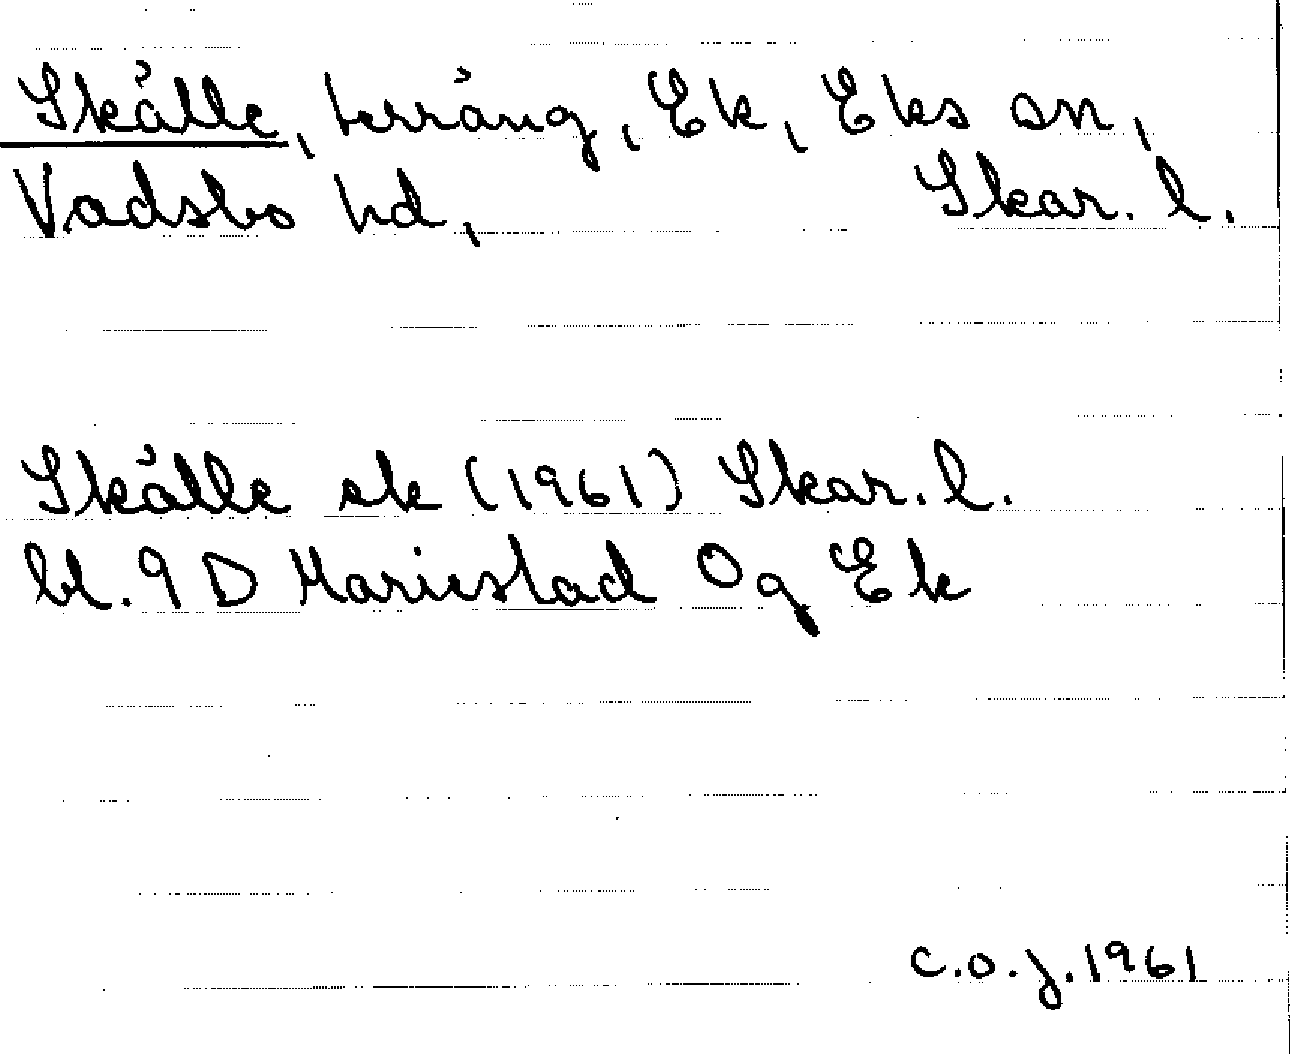 Skälle, terräng, Ek, Eks sn,
Vadsbo hd, Skar. l.
Skälle sk (1961) Skar. l.
bl. 9 D Mariestad 0g Ek
C.O.J. 1961